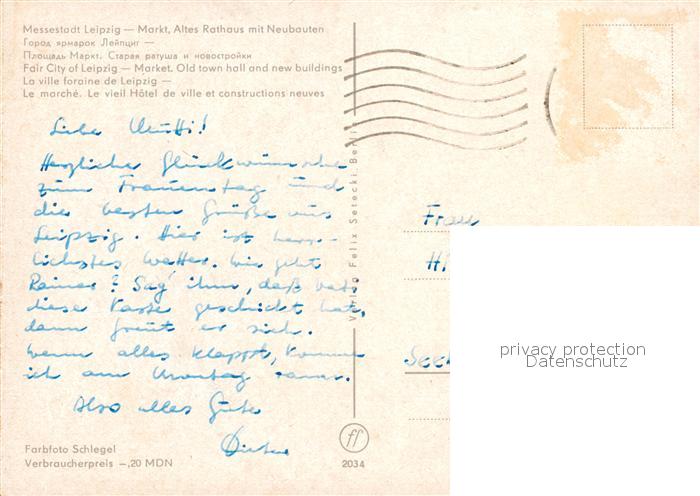 Messestadt Leipzig — Markt, Altes Rathaus mit Neubauten
Город ярмарок Лейпциг —
Площадь Маркт. Старая ратуша и новостройки
Fair City of Leipzig — Market. Old town hall and new buildings
La ville foraine de Leipzig —
Le marché. Le vieil Hôtel de ville et constructions neuves
Liebe Mutti!
Herzliche Glückwünsche
zum Frauentag und
die besten Grüße aus
Leipzig. Hier ist herr-
lichstes Wetter. Wie geht
Rainer? Sag ihm, daß
diese Karte geschickt hat,
dann freut er sich.
Wenn alles klappt, komme
ich am Montag
Also alles Gute
Dieter
Verlag Felix Setecki, Berlin
Frau
H
See
privacy protection
Datenschutz
Farbfoto Schlegel
Verbraucherpreis –,20 MDN
ff
2034